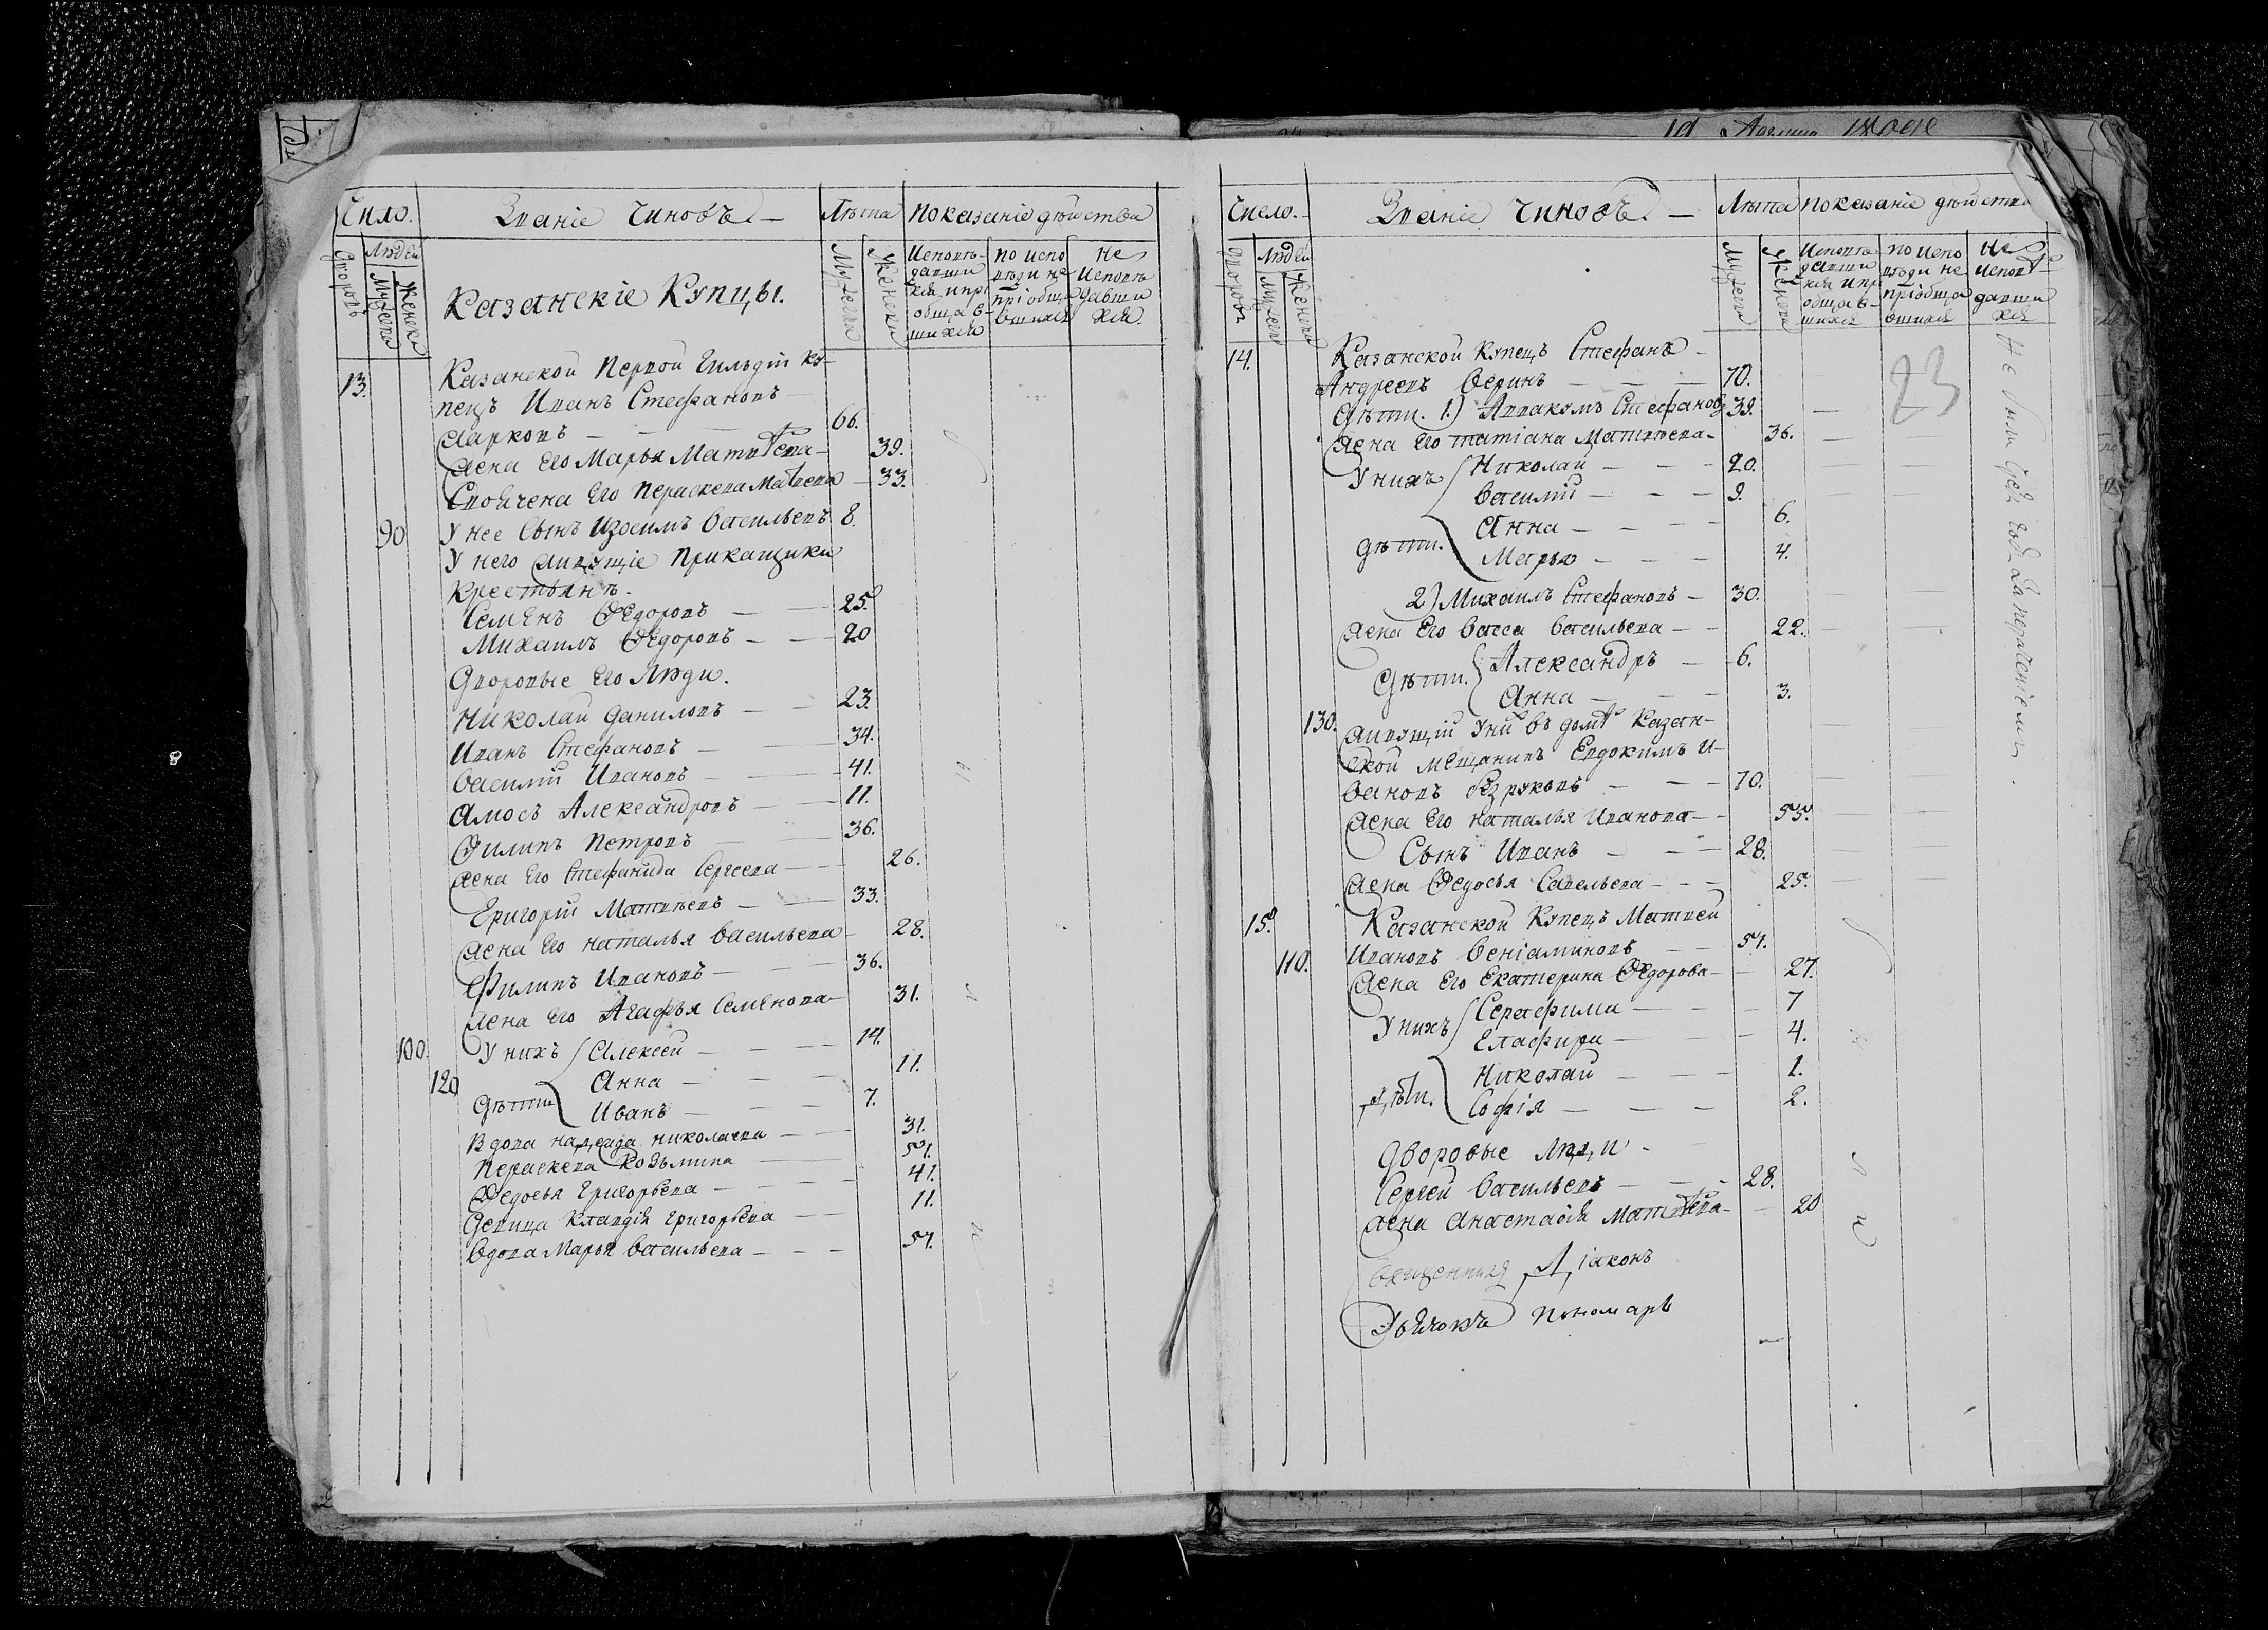 Число.
Званіе чиновъ
Лѣта
показаніе дѣйства
Дворовъ
Людей
Мужеска
Женска
Казанскіе Купцы.
Мужеска
Женска
Исповѣ-
давши
хся и прі
общав-
шихся
по испо
вѣди не
пріобща
вшихся
Не
исповѣ
давши
хся.
13.
Казанской Первой Гильдіи ку-
пецъ Иванъ Стефановъ
Жарковъ 66.
Жена Его Марья Матвѣева 39.
Своячена Его Параскева Матвѣева 33.
90 У нее Сынъ Изосимъ Васильевъ 8.
У него живущіе Прикащики
Крестьянъ.
Семенъ Федоровъ 25.
Михаилъ Федоровъ 20
Дворовые Его Люди.
Николай Даниловъ 23.
Иванъ Стефановъ 34.
Василій Ивановъ 41.
Амосъ Александровъ 11.
Филипъ Петровъ 36.
Жена Его Стефанида Сергеева 26.
Григорій Матвѣевъ 33.
Жена Его Наталья Васильева 28.
Филипъ Ивановъ 36.
Жена Его Агафья Семенова 31.
100 У нихъ Алексей 14.
120 Анна 11.
Дѣти Иванъ 7.
Вдова Надежда Николаева 31.
Параскева Козьмина 51.
Федосья Григорьева 41.
Девица Клавдія Григорьева 11.
Вдова Марья Васильева 51.
Число.
Званіе чиновъ
Лѣта
показаніе дѣйства
Дворовъ
Людей
Мужеска
Женска
Мужеска
Женска
Исповѣ-
давши
хся и прі
общав-
шихся
по испо
вѣди не
пріобща
вшихся
Не
исповѣ
давши
хся
14. Казанской Купецъ Стефанъ
Андреевъ Веринъ 70.
Дѣти. 1.) Аввакумъ Стефановъ 39.
Жена Его Татіана Матвѣева 36.
У нихъ Николай 20.
Василій 9.
Анна 6.
Дѣти. Марья 4.
2) Михаилъ Стефановъ 30.
Жена Его Васса Васильева 22.
Дѣти. Александръ 6.
Анна 3.
130. Живущій у нихъ въ домѣ Казан-
ской Мещанинъ Евдокимъ И-
вановъ Резруковъ 70.
Жена Его Наталья Иванова 55.
Сынъ Иванъ 28.
Жена Федосья Савельева 25.
15. Казанской Купецъ Матвей
110. Ивановъ Веніаминовъ 51.
Жена Его Екатерина Федорова 27.
У нихъ Серафима 7
Глафира 4.
Николай 1.
Дѣти. Софія 2.
Дворовые Люди
Сергей Васильевъ 28.
Жена Анастасія Матвѣева 20
Священникъ Діаконъ
Дьячокъ Пономарь
23